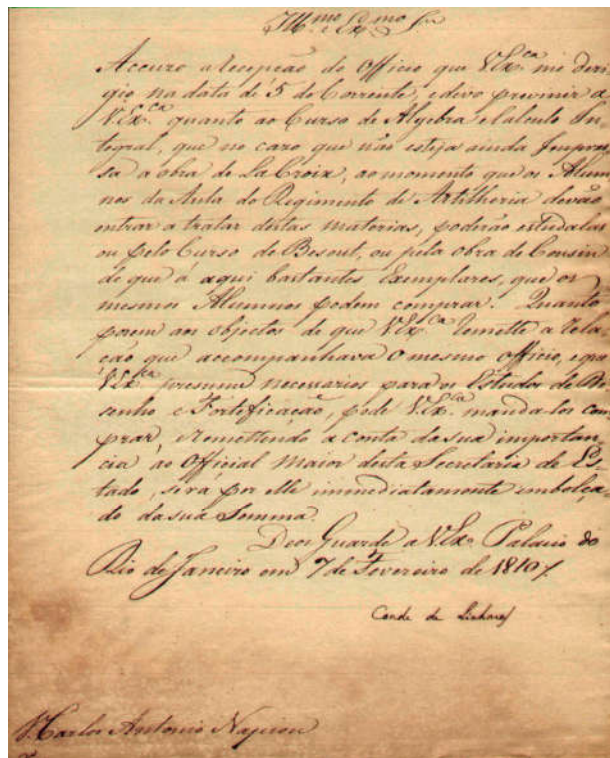 Ill.mo e Ex.mo Snr
Accuzo a recepção do Officio que V.Ex.ca me deri
gio na data de 5 do Corrente, e devo prevenir a
V.Ex.ca quanto ao Curso de Algebra e Calculo In
tegral, que no cazo que não esteja ainda Impres
sa a obra de La Croix, ao momento que os Alum
nos da Aula do Regimento de Artilheria devão
entrar a tratar destas materias, poderão estudalas
ou pelo Curso de Besout, ou pela obra de Cousin
de que á aqui bastantes Exemplares, que os
mesmos Alumnos podem comprar. Quanto
porem aos objectos de que V.Ex.ca remette a rela
ção que accompanhava o mesmo Officio, e que
V.Ex.ca presume necessarios para os Estudos de De
senho e Fortificação, pode V.Ex.ca mandalos com
prar, e remettendo a conta da sua importan
cia ao Official Maior desta Secretaria de Es
tado, será por elle immediatamente embolça
do da sua Somma.
Deos Guarde a V.Ex.ca Palacio do
Rio de Janeiro em 7 de Fevereiro de 1810
Conde de Linhares
Carlos Antonio Napion